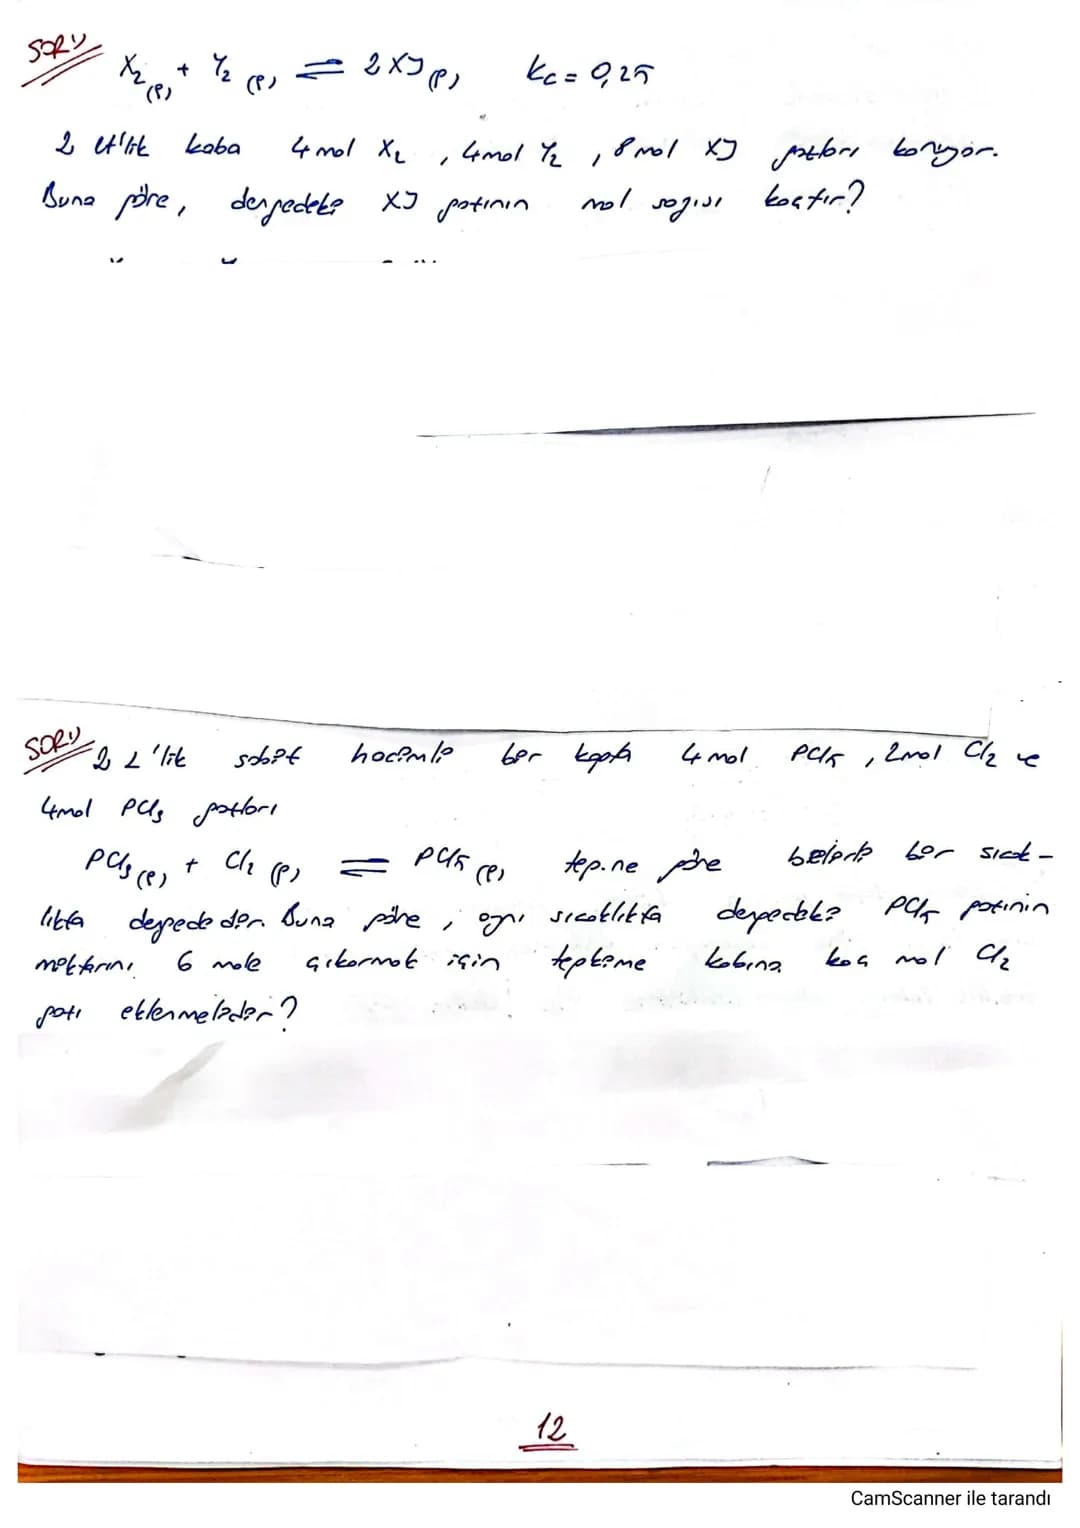 SORU
X₂(g) + Y₂(g) ⇌ 2XY(g) Kc = 0,25
2 lt'lik kaba 4 mol X₂, 4mol Y₂, 8 mol XY gazları konuyor.
Buna göre, dengedeki XY gazının mol sayısı kaçtır?
SORU 2 L'lik sabit hacimli bir kapta 4 mol PCl₅, 2mol Cl₂ ve
4mol PCl₃ gazları
PCl₃(g) + Cl₂(g) ⇌ PCl₅(g) tep.ne göre belirli bir sıcak-
lıkta dengededir. Buna göre, aynı sıcaklıkta dengedeki PCl₅ gazının
miktarını 6 mole çıkarmak için tepkime kabına kaç mol Cl₂
gazı eklenmelidir?
12
CamScanner ile tarandı